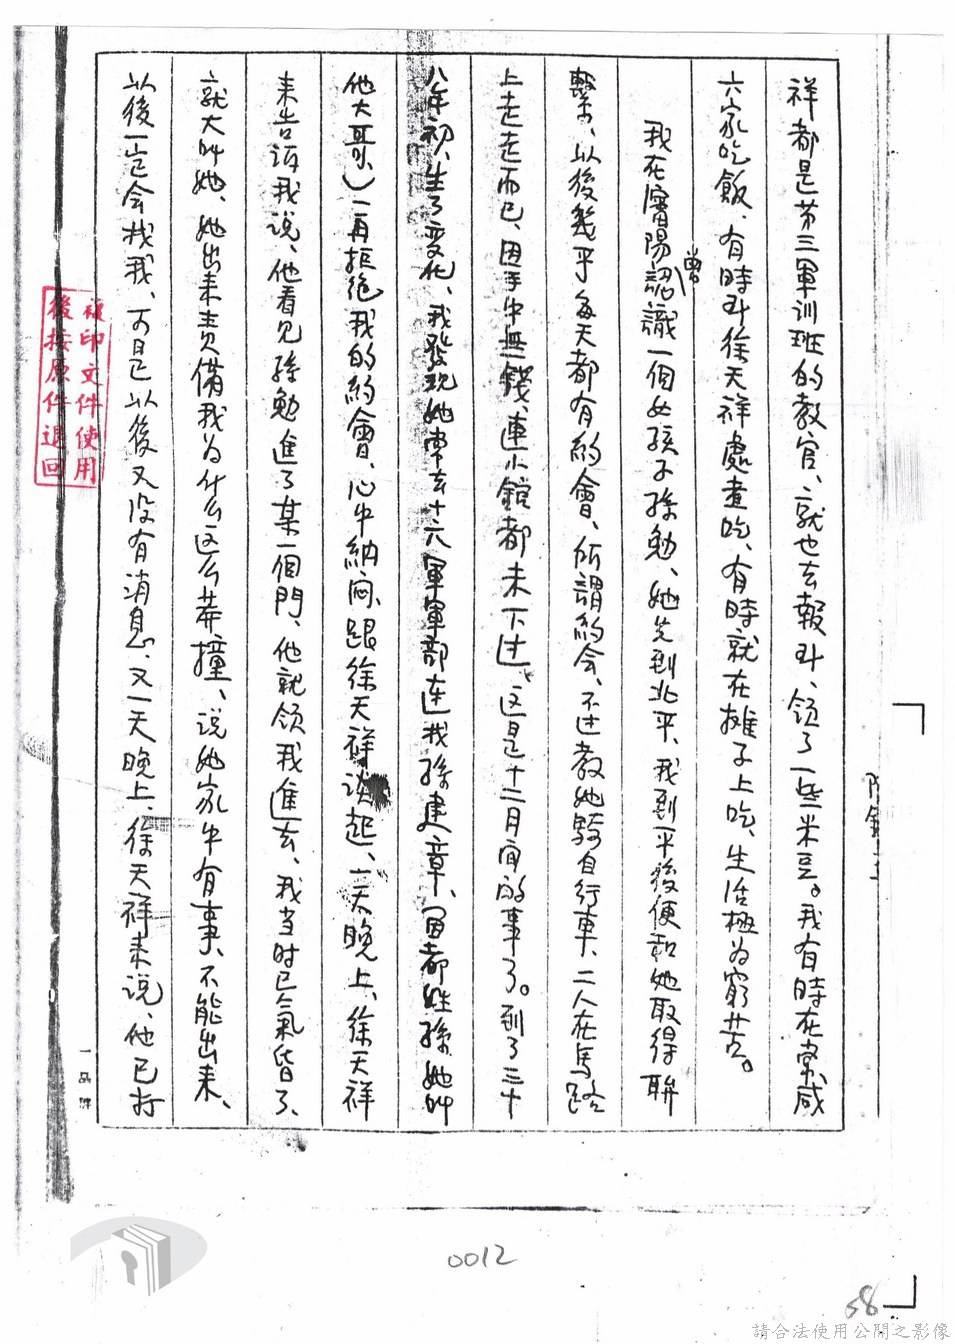 祥都是第三軍训班的教官、就也去報斗、領了一些米豆。我有時在常咸
六家吃飯、有時斗徐天祥處煮吃、有時就在摊子上吃、生活極为窮苦。
我在瀋陽曾認識一個女孩子孫勉、她先到北平、我到平後便和她取得聯
繫、以後幾乎每天都有約會、所謂約会、不过教她騎自行車、二人在馬路
上走走而已、因手中無錢、連小館都未下过、这是十二月间的事了。到了三十
八年初、生了变化、我發現她常去十六軍軍部連找孫建章、(因都姓孫她叫
他大哥、)一再拒絶我的約會、心中納闷、跟徐天祥谈起、一天晚上、徐天祥
来告訴我说、他看见孫勉進了某一個門、他就领我進去、我当时已氣昏了、
就大叫她、她出来责備我为什么这么莽撞、说她家中有事、不能出来、
以後一定会找我、可是以後又没有消息、又一天晚上、徐天祥来说、他已打
複印文件使用
後按原件退回
一品牌
0012
68
請合法使用公開之影像